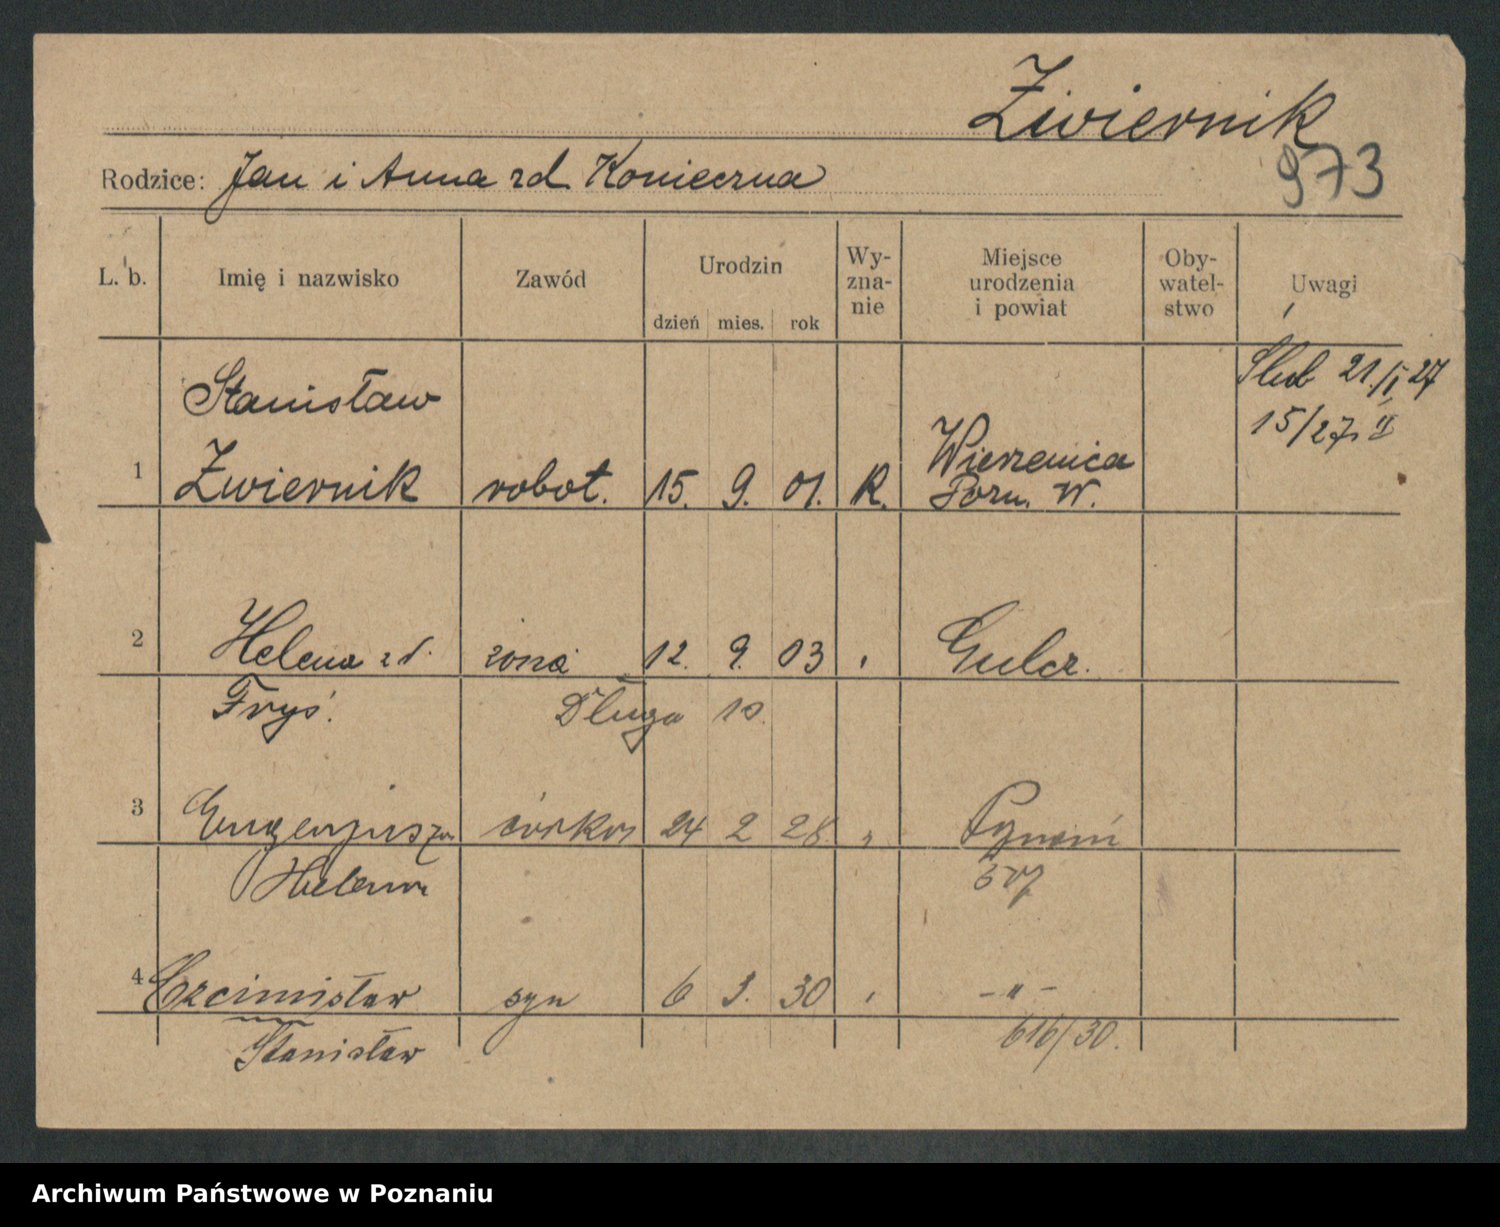 Zwiernik
973
Rodzice: Jan i Anna zd Konieczna
L. b. Imię i nazwisko Zawód Urodzin dzień mies. rok Wy-zna-nie Miejsce urodzenia i powiat Oby-watel-stwo Uwagi
Ślub 21./I 27
15/27. II
Stanisław
1 Zwiernik robot. 15. 9. 01. R. Wierzenica
Pozn. W.
2 Helena zd. żona 12. 9. 03 " Gulcz.
Fryś. Długa 10.
3 córka 24 2 28 " Poznań
Helena
4 Czcimisław syn 6 3. 30 " -"-
Stanisław 616/30.
Archiwum Państwowe w Poznaniu